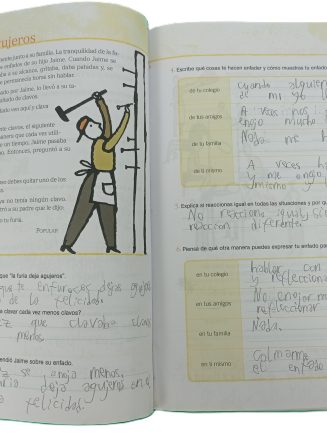 gujeros
mente junto a su familia. La tranquilidad de la fa-
enfados de su hijo Jaime. Cuando Jaime se
ba a su alcance, gritaba, daba patadas y, se
permanecía horas sin hablar.
ado por Jaime, lo llevó a su ta-
ñado de clavos.
do ven aquí y clava
ste clavos, el siguiente
anera que cada vez utili-
un tiempo, Jaime pasaba
o. Entonces, preguntó a su
so debes quitar uno de los
ya no tenía ningún clavo.
tró a su padre que le dijo:
tu furia.
POPULAR
que "la furia deja agujeros".
que te enfureces dejas agujeros
de la felicidad.
e clavar cada vez menos clavos?
ez que clavaba clavos
menos.
endió Jaime sobre su enfado.
z se enoja menos.
uria deja agujeros en
a felicidad.
4. Escribe qué cosas te hacen enfadar y cómo muestras tu enfado
de tu colegio
cuando alguien
de mi
de tus amigos
A veces
enojo mucho
de tu familia
Nada me
de ti mismo
A veces
y me enojo
mismo
5. Explica si reaccionas igual en todas las situaciones y por qu
No reacciono igual,
reaccion diferente.
6. Piensa de qué otra manera puedes expresar tu enfado par
en tu colegio
hablar con
y reflecciona
en tus amigos
No enojarme
refleccionar
en tu familia
Nada.
en ti mismo
Calmarme
el enfado